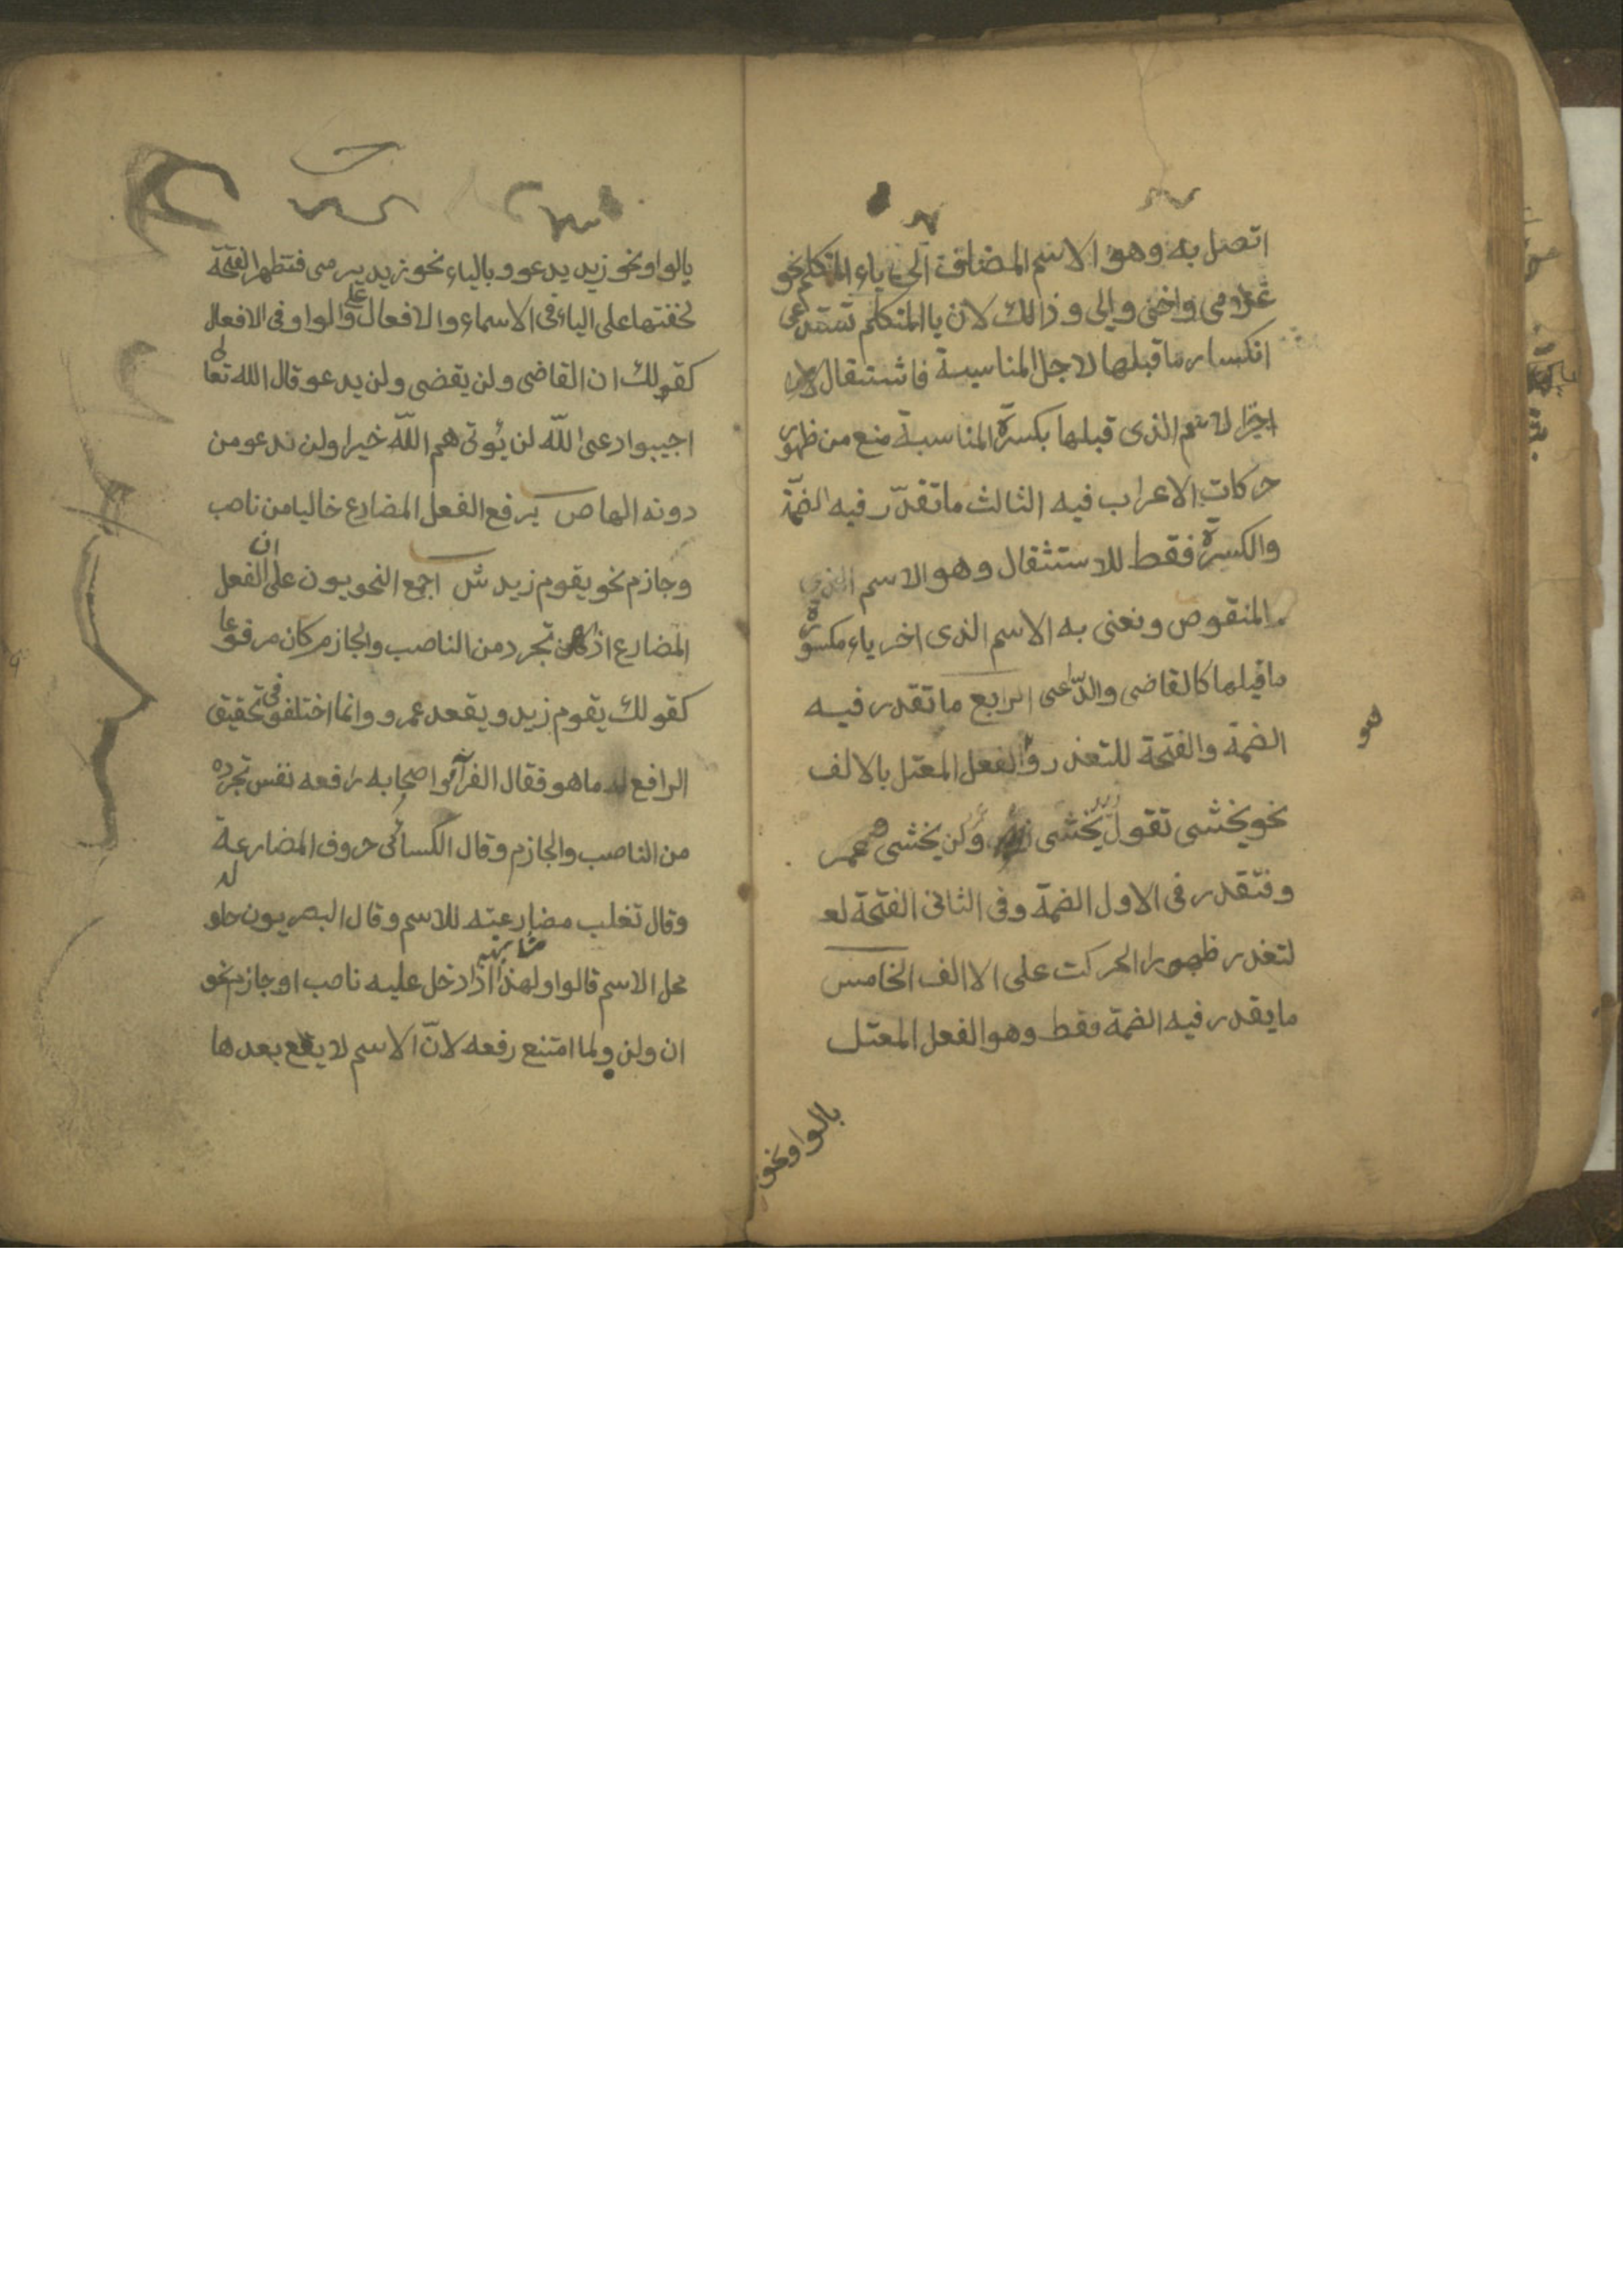 اتصل به وهو الاسم المضاف الى ياء المتكلم نحو
غلامى واخى وابى وذالك لان يا المتكلم تستدعى
انكسار ما قبلها لاجل المناسبة فاشتغال
اخر الاسم الذى قبلها بكسرة المناسبة منع من ظهور
حركات الاعراب فيه الثالث ما تقدر فيه الضمة
والكسرة فقط للاستثقال وهو الاسم الذى
المنقوص ونعنى به الاسم الذى اخر ياء مكسورة
ما قبلها كالقاضى والداعى الرابع ما تقدر فيه
الضمة والفتحة للتعذر وهو الفعل المعتل بالالف
نحو يخشى تقول يخشى زيد ولن يخشى عمر
وفتقدر فى الاول الضمة وفى الثانى الفتحة لعـ
لتعذر ظهورا الحركت على الاالف الخامس
ما يقدر فيه الضمة فقط وهو الفعل المعتل
بالواو نحو
يالواو نحو زيد يدعو وبالياء نحو زيد يرمى فتظهر الفتحة
لخفتها على الياء فى الاسماء والافعال وعلى الواو فى الافعال
كقولك ان القاضى ولن يقضى ولن يدعو قال الله تعالى
اجيبوا دعى الله لن يؤتى هم الله خيرا ولن ندعو من
دونه الها ص يرفع الفعل المضارع خاليا من ناصب
وجازم نحو يقوم زيد ش اجمع النحويون على ان الفعل
المضارع اذا تجرد من الناصب والجازم كان مرفوعا
كقولك يقوم زيد ويقعد عمرو وانما اختلفو فى تحقيق
الرافع له ما هو فقال الفراء واصحابه رافعه نفس تجرده
من الناصب والجازم وقال الكسائى حروف المضارعة
وقال تغلب مضارعته للاسم وقال البصريون حلوله
محل الاسم قالوا ولهذا اذا دخل عليه ناصب او جازم نحو
ان ولن ولما امتنع رفعه لان الاسم لا يقع بعدها